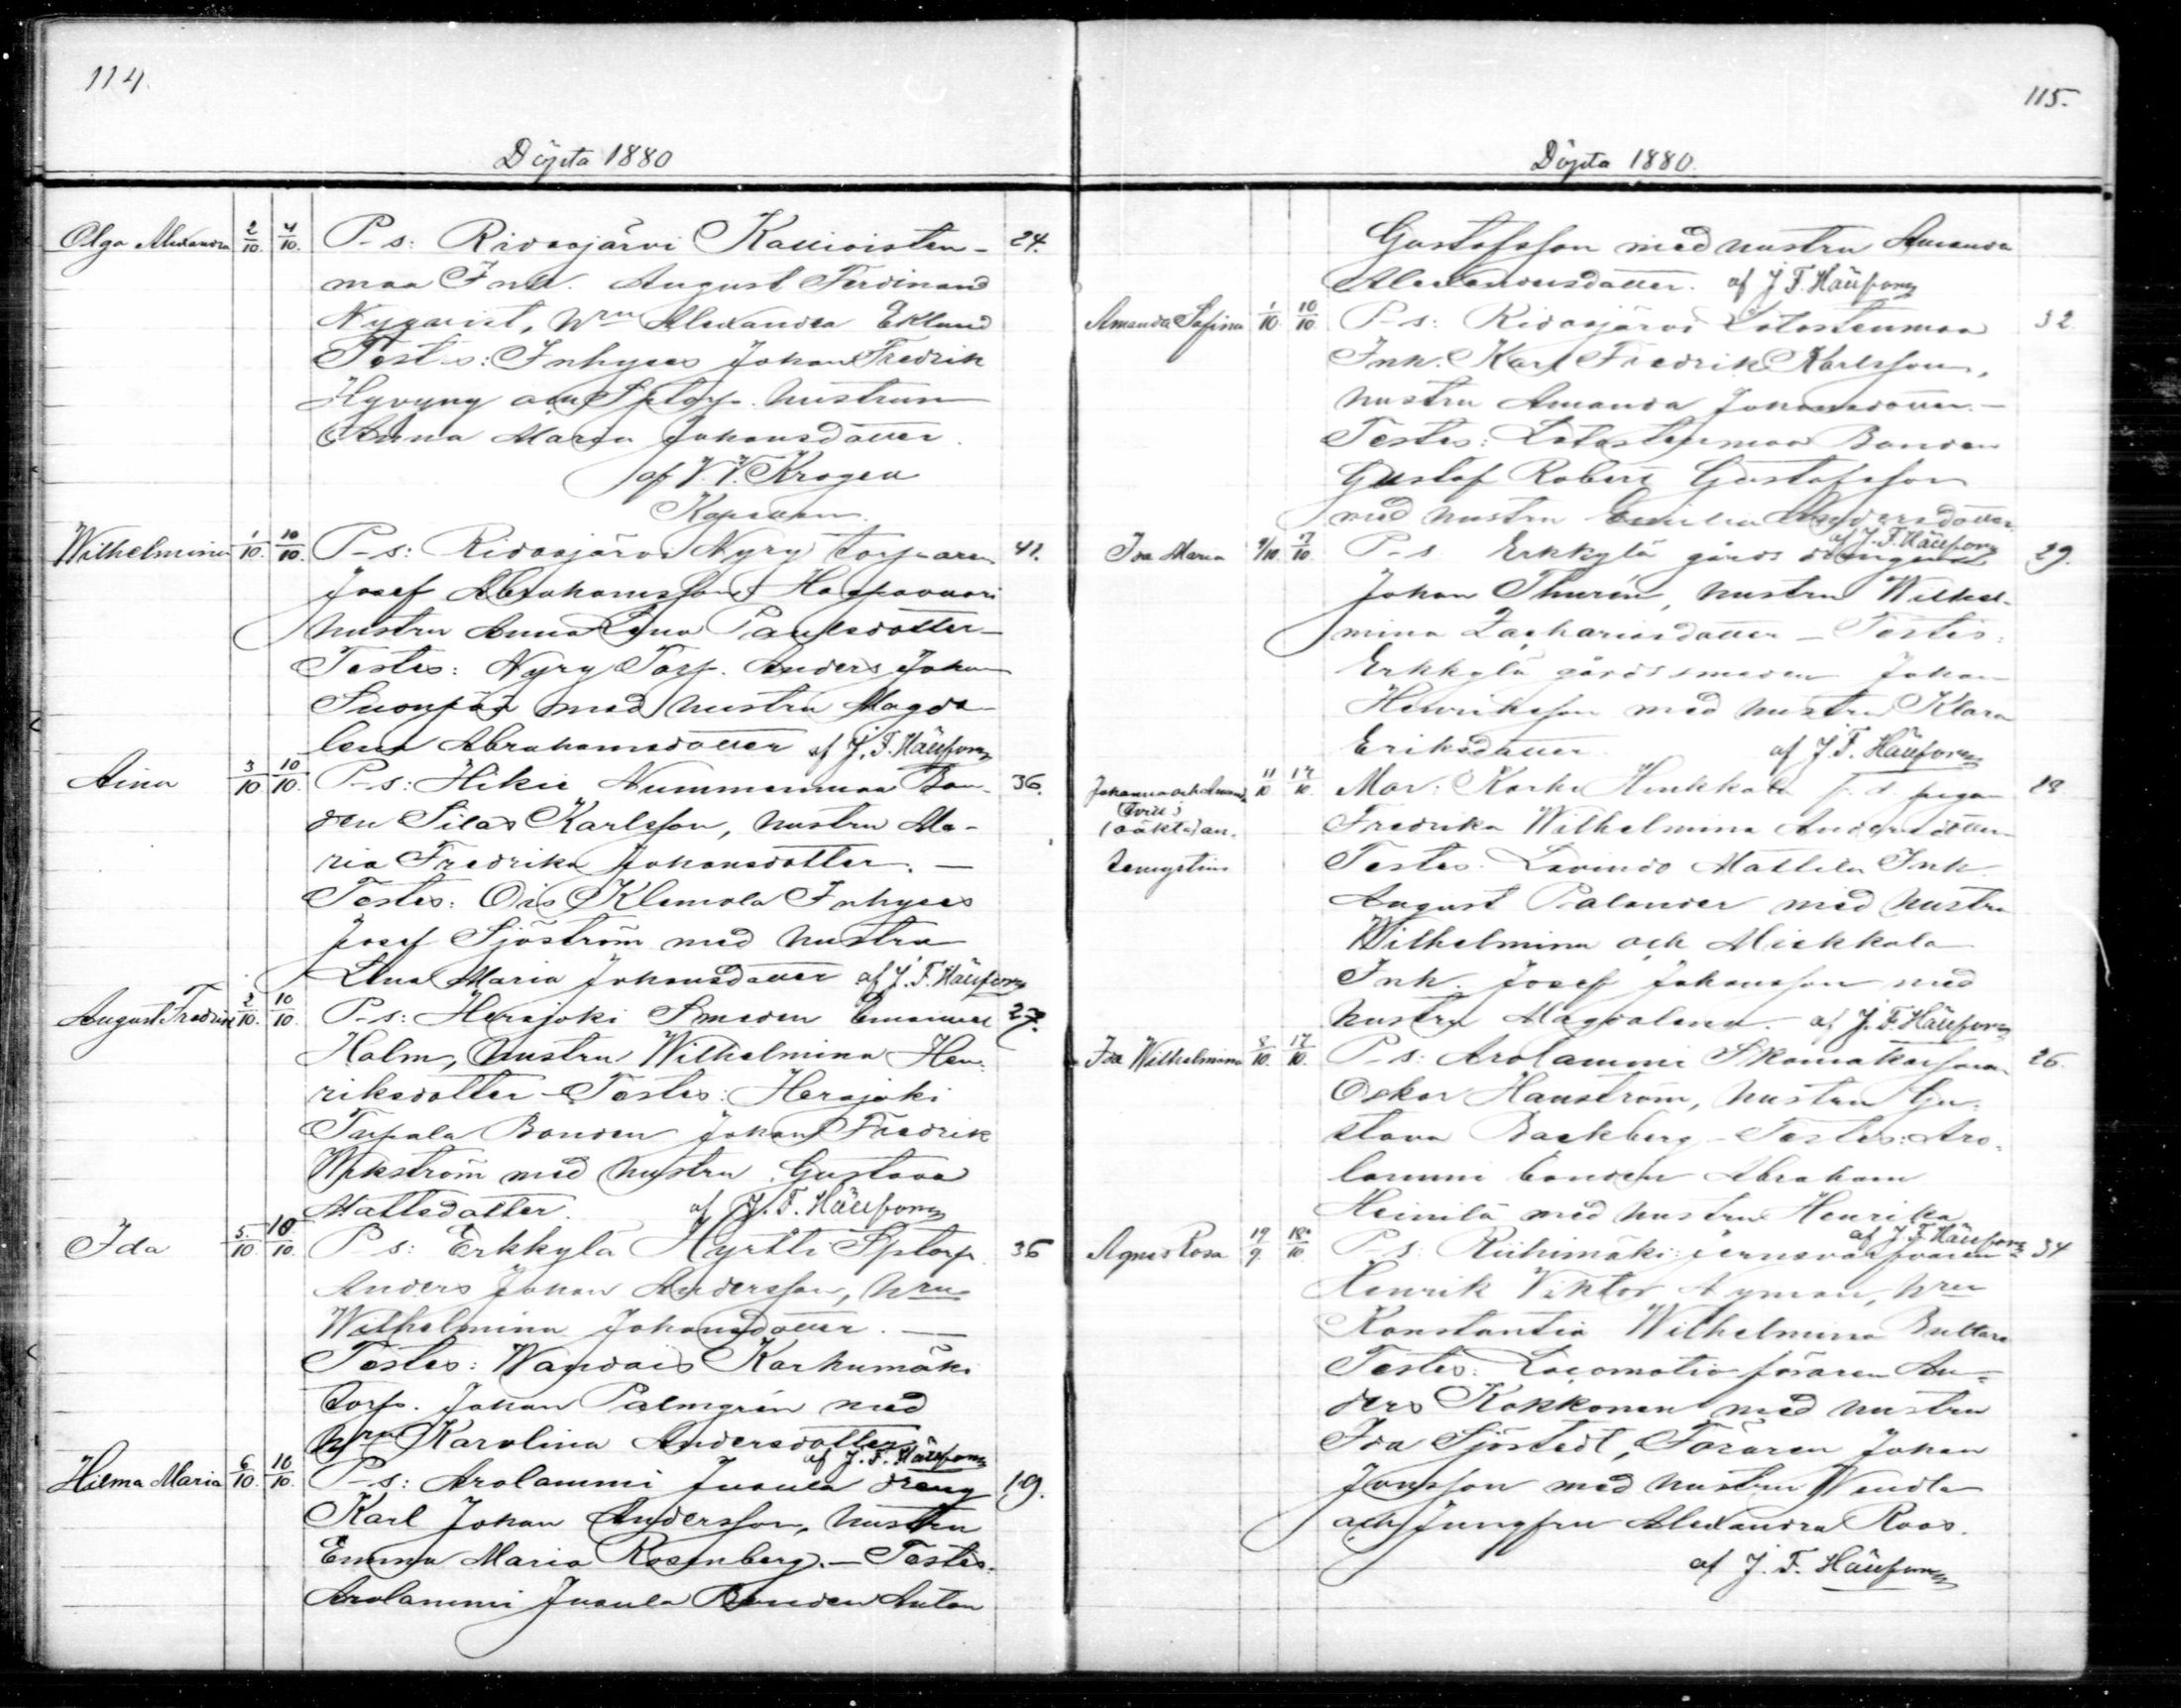 114.
Döpta 1880
Olga Alexandra 2/10. 4/10. P-s: Ridasjärvi Kallioisten- 24.
maa Inh. August Ferdinand
Nyqvist, hru Alexandra Eklund
Test-s: Inhyses Johan Fredrik
Hyvyng och Sptorp. hustrun
Anna Maria Johansdotter.
af V. V. Krogell
Kapellan.
Wilhelmina 1/10. 10/10. P-s: Ridasjärvi Nyry torparen 41.
Josef Abrahamsson Haapavuori
hustru Anna Lena Paulsdotter-
Testes: Nyry Torp. Anders Johan
Suonpää med hustru Magda-
lena Abrahamsdotter af J. F. Hällfors
Aina 3/10 10/10. P-s: Hikiä Nummenmaa Bon- 36.
den Silas Karlsson, hustru Ma-
ria Fredrika Johansdotter. —
Testes: Ois Klemola Inhyses
Josef Sjöström med hustru
Lena Maria Johansdotter af J. F. Hällfors
August Fredrik 2/10. 10/10. P-s: Herajoki Smeden Emanuel 27.
Holm, hustru Wilhelmina Hen-
riksdotter - Testes: Herajoki
Bonden Johan Fredrik
Wikström med hustru Gustava
Mattsdotter. af J. F. Hällfors
Ida 5./10. 10/10. P-s: Erkkylä Hyrtti Sptorp. 36
Anders Johan Andersson, hru
Wilhelmina Johansdotter. —
Testes: Karhumäki
torp. Johan Palmgrén med
hru Karolina Andersdotter
af J. F. Hällfors
Hilma Maria 6/10. 10/10. P-s: Arolammi Jusula dreng 19.
Karl Johan Andersson, hustru
Emma Maria Rosenberg. — Testes.
Arolammi Jusula Bonden Anton
115.
Döpta 1880.
Gustafsson med hustru Amanda
Alexandersdotter. af J. F. Hällfors
Amanda Sofina 1/10 10/10. P-s: Ridasjärvi Latostenmaa 32.
Inh. Karl Fredrik Karlsson,
hustru Amanda Johansdotter. —
Testes: Latostenmaa Bonden
Gustaf Robert Gustafsson
med hustru Emilia Andersdotter.
af J. F. Hällfors
Ida Maria 4/10. 7/10. P-s. Erkkylä gårds drengen 29.
Johan Thurén, hustru Wilhel-
mina Zachariasdotter - Testes:
Erkkylä gårds smeden Johan
Henriksson med hustru Klara
Eriksdotter af J. F. Hällfors
Johanna och Amanda 11/10 17/10. Mor: Karhi Hinkkala f. d. pigan 28
(tvill:) Fredrika Wilhelmina Andersdotter
(oäkta) an- Testes: Lavindo Mattila Inh.
August Palander med hustru
Wilhelmina och Miekkala
Inh. Josef Johansson med
hustru Magdalena. af J. F. Hällfors
Ida Wilhelmina 8/10. 17/10. P-s: Arolammi Skomakaren 26.
Oskar Hanström, hustru Gu-
stava Backberg - Testes: Aro-
lammi bonden Abraham
Heinilä med hustru Henrika
af J. F. Hällfors
Agnes Rosa 19/9. 18/10. P-s. Riihimäki: 34
Henrik Viktor Nyman, hru
Konstantia Wilhelmina
Testes: Locomotiv föraren An-
ders Kokkonen med hustru
Ida Sjöstedt, Föraren Johan
Jonsson med hustru Wendla
och Jungfru Alexandra Roos.
af J. F. Hällfors